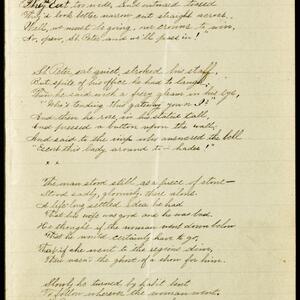 too and outward tossed
They'd look better narrow cut straight across.
Well, we must be going, our crowns to win,
So, open, St. Peter and we'll pass in!"
St. Peter sat quiet stroked his staff,
But spite of his office he had to laugh;
Then he said with a fiery gleam in his eye,
"Who's tending this gateway you or I?"
And then he rose, in his stature tall,
And pressed a button upon the wall,
And said to the imp who answered the bell
"Escort this lady around to - hades!"
x x
The man stood still as a piece of stone -
Stood sadly, gloomily there alone.
A life-long settled idea he had
That his wife was good and he was bad.
He thought if the woman went down below
That he would certainly have to go;
That if she went to the regions dim,
There wasn't the ghost of a show for him.
Slowly he turned by habit bent
To follow wherever the woman went.